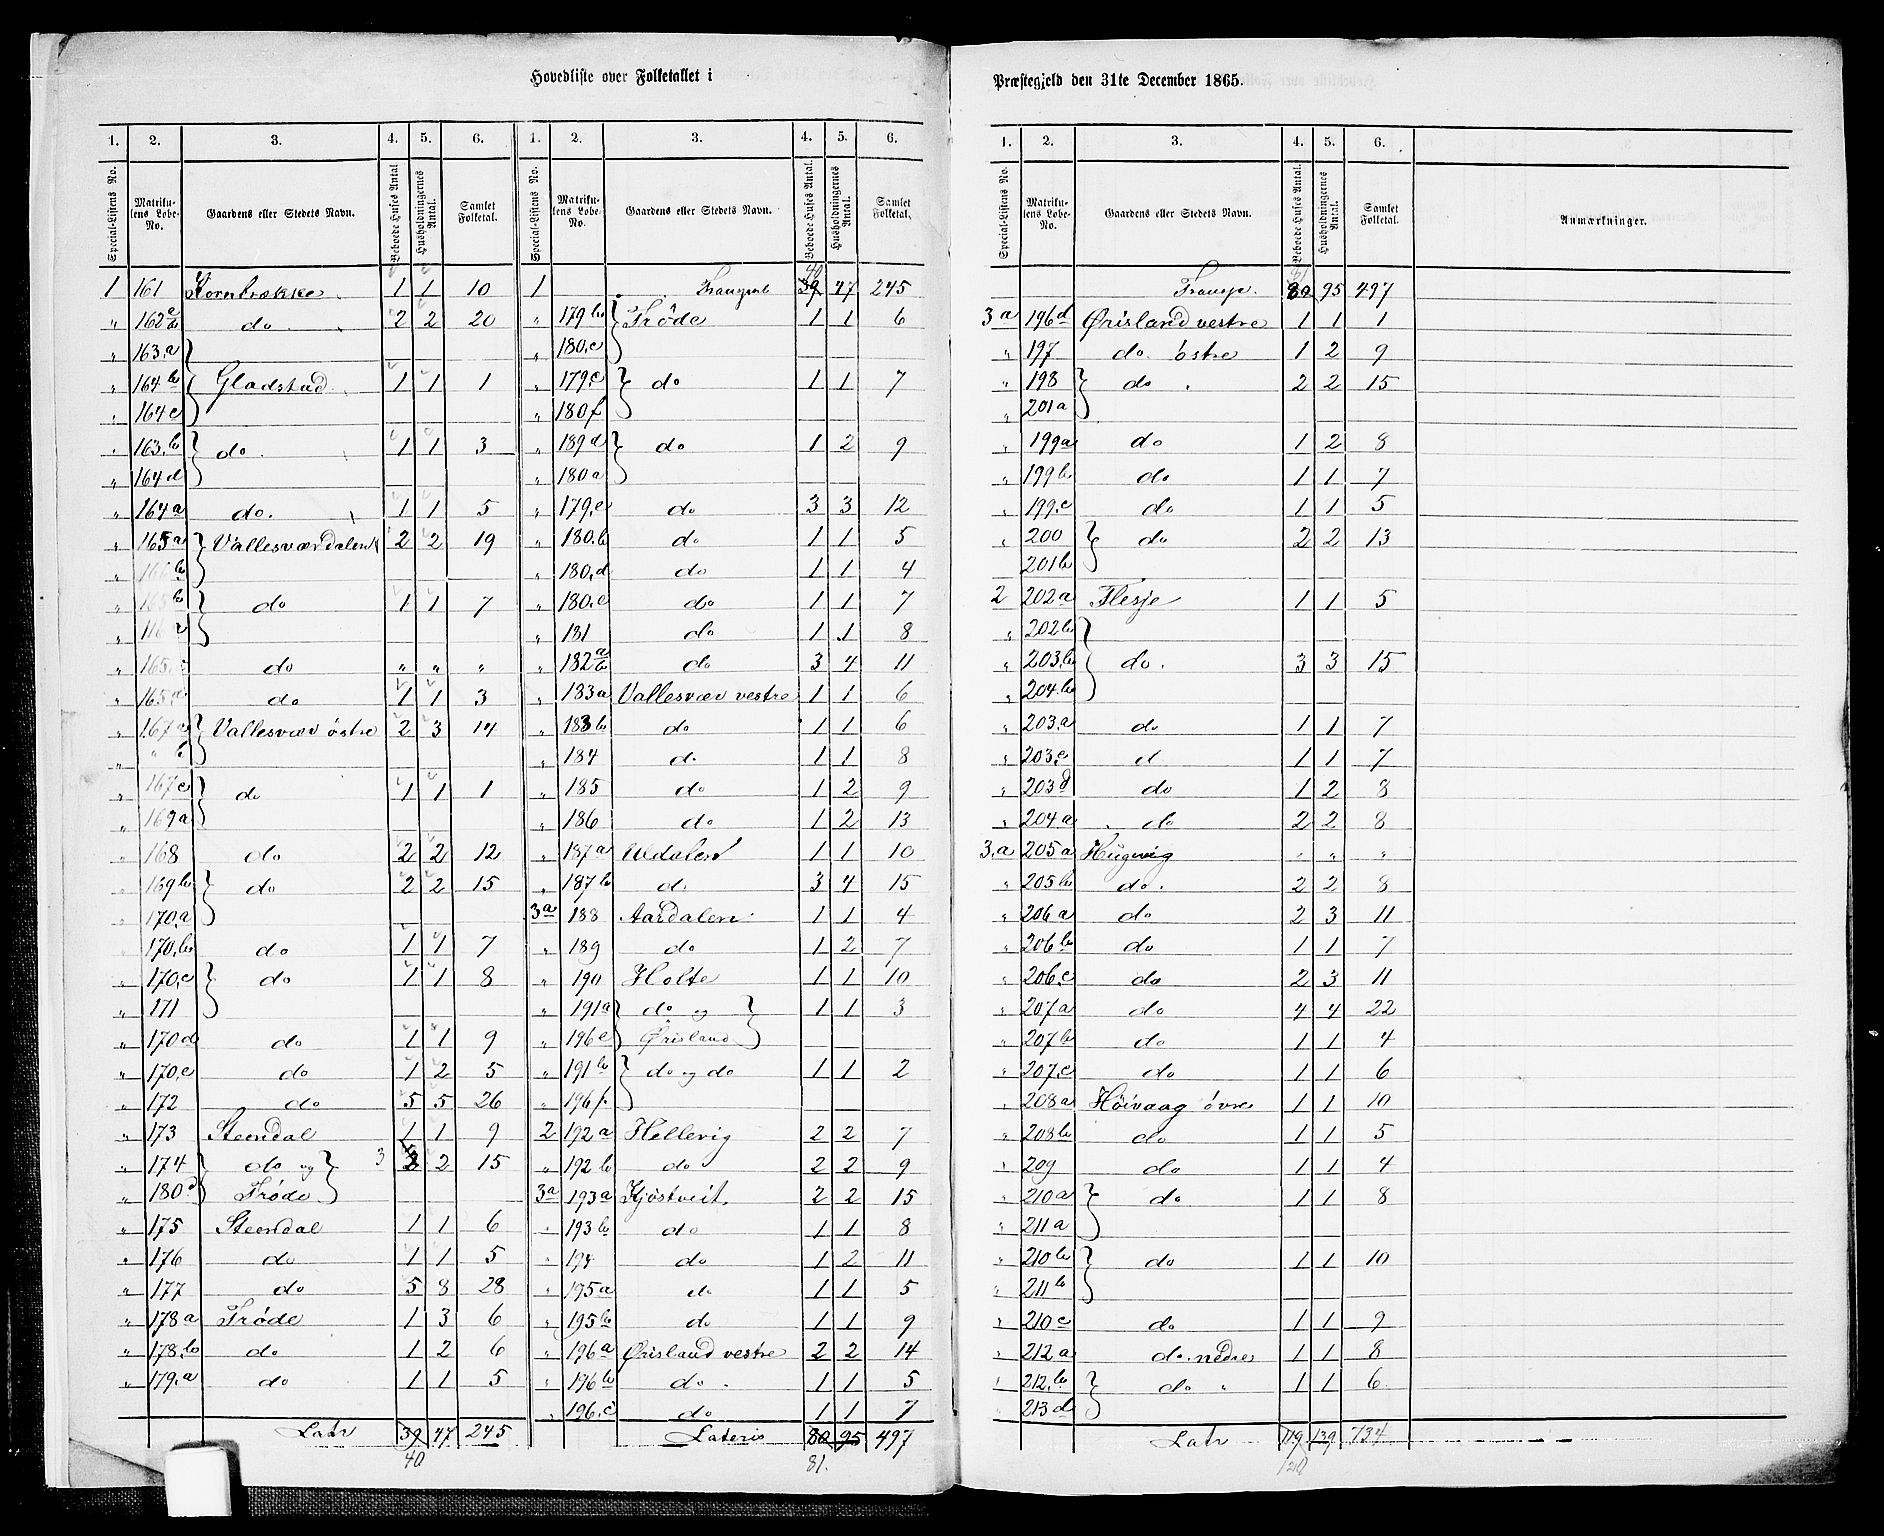 Hovedliste over Folketallet i
1. 2. 3. 4. 5. 6.
Special-Listens No. Matrikulens Løbe-No. Gaardens eller Stedets Navn. Beboede Huses Antal Husholdningernes Antal. Samlet Folketal.
1 161 Kornbrække 1 1 10
" 162 do 2 2 20
" 163.a
" 164b Gladstad 1 1 1
" 164c
" 163.b do 1 1 3
" 164d
" 164a do. 1 1 5
" 165a Vallesværdalen 2 2 19
" 166b
" 165b do 1 1 7
"
" 165. do " " "
" 165.d do 1 1 3
" 167a Vallesvær østre 2 3 14
" " b
" 167c do 1 1 1
" 169a
" 168 do 2 2 12
" 169b do 2 2 15
" 170.a
" 170.b do 1 1 7
" 170.c do 1 1 8
" 171
" 170d do 1 1 9
" 170.e do 1 2 5
" 172 do 5 5 26
" 173 Steendal 1 1 9
" 174 do og 3 2 2 15
" 180 Trøde
" 175 Steendal 1 1 6
" 176 do 1 1 5
" 177 do 5 8 28
" 178a Trøde 1 3 6
" 178.b do 1 2 6
" 179.a do 1 1 5
Latr 39 47 245
40
1. 2. 3. 4. 5. 6.
Special-Listens No. Matrikulens Løbe-No. Gaardens eller Stedets Navn. Beboede Huses Antal. Husholdningernes Antal. Samlet Folketal.
40
1 Transport 39 47 245
" 179b Trøde 1 1 6
" 180.c
" 179.c do 1 1 7
" 180f
" 189d do 1 2 9
" 180a
" 179.e do 3 3 12
" 180.b do 1 1 5
" 180.d do 1 1 4
" 180.e do 1 1 7
" 181 do 1 1 8
" 182 a b do 3 4 11
" 183a Vallesvær vestre 1 1 6
" 183b do 1 1 6
" 184 do 1 1 8
" 185 do 1 2 9
" 186 do 1 2 13
" 187a Uldalen 1 1 10
" 187b do 3 4 15
3a 188 Aardalen 1 1 4
" 189 do 1 2 7
" 190 Holte 1 1 10
" 191a do og 1 1 3
" 196e Ørisland
" 191b do og do 1 1 2
" 196f
2 192a Hellevig 2 2 7
" 192b do 2 2 9
3a 193a Kjøstveit 2 2 15
" 193b do 1 1 8
" 194 do 1 2 11
" 195a do 1 1 5
" 195b do 1 1 9
" 196a Ørisland vestre 2 2 14
" 196b do 1 1 5
" 196.c do 1 1 7
Lateris 80 95 497
81.
Præstegjeld den 31te December 1865.
1. 2. 3. 4. 5. 6.
Special-Listens No. Matrikulens Løbe-No. Gaardens eller Stedets Navn. Beboede Huses Antal. Husholdningernes Antal. Samlet Folketal. Anmærkninger.
81
Transp. 80 95 497
3a 196d Ørisland vestre 1 1 1
" 197 do. østre 1 2 9
" 198 do " 2 2 15
" 201a
" 199a do 1 2 8
" 199b do 1 1 7
" 199.c do 1 1 5
" 200 do 2 2 13
201b
2 202a Flesje 1 1 5
" 202b
" 203.b do. 3 3 15
" 204.b
" 203.a do 1 1 7
" 203.c d 1 1 7
" 203d do 1 2 8
" 204.a do 2 2 8
3.a 205a Hugvig " " "
" 205b do. 2 2 8
" 206a do 2 3 11
" 206b do 1 1 7
" 206.c do 2 3 11
" 207a do 4 4 22
" 207b do 1 1 4
" 207.c do 1 1 6
" 208a Høivaag øvre 1 1 10
" 208b do 1 1 5
" 209 do 1 1 4
" 210a do 1 1 8
" 211a
" 210b do 1 1 10
" 211b
" 210c do 1 1 9
" 212a do. nedre 1 1 8
" 212.b do " 1 1 6
" 213d
Latr 119 139 734
120